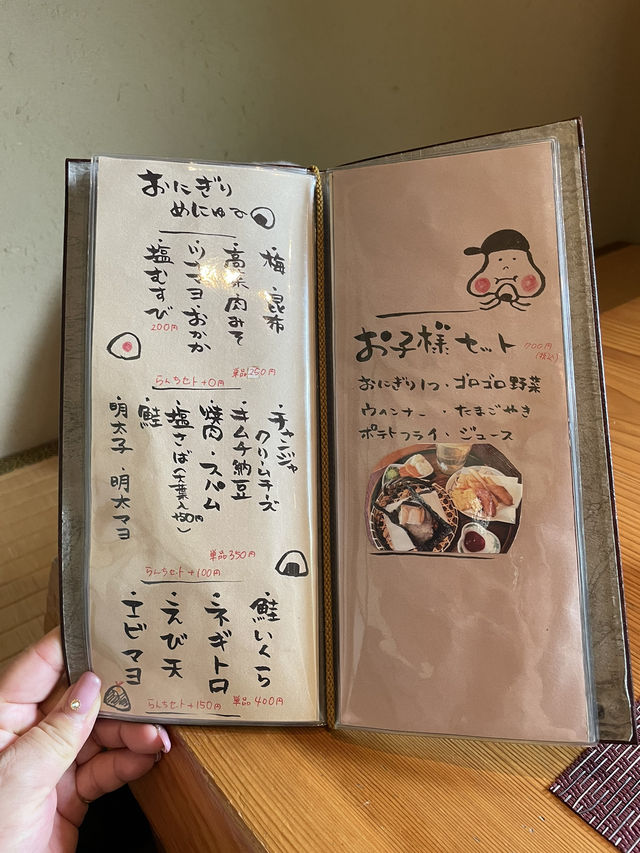 おにぎり
めにゅう
・梅・昆布
・高菜・肉みそ
・ツナマヨ・おかか
・塩むすび
200円
単品250円
らんちセット+0円
・チャンジャ
クリームチーズ
・キムチ納豆
・焼肉・スパム
・塩さば(大葉入+50円)
・鮭
・明太子・明太マヨ
単品350円
らんちセット+100円
・鮭いくら
・ネギトロ
・えび天
・エビマヨ
単品400円
らんちセット+150円
お子様セット
700円
(税込)
おにぎり1つ・ゴロゴロ野菜
ウィンナー・たまごやき
ポテトフライ・ジュース